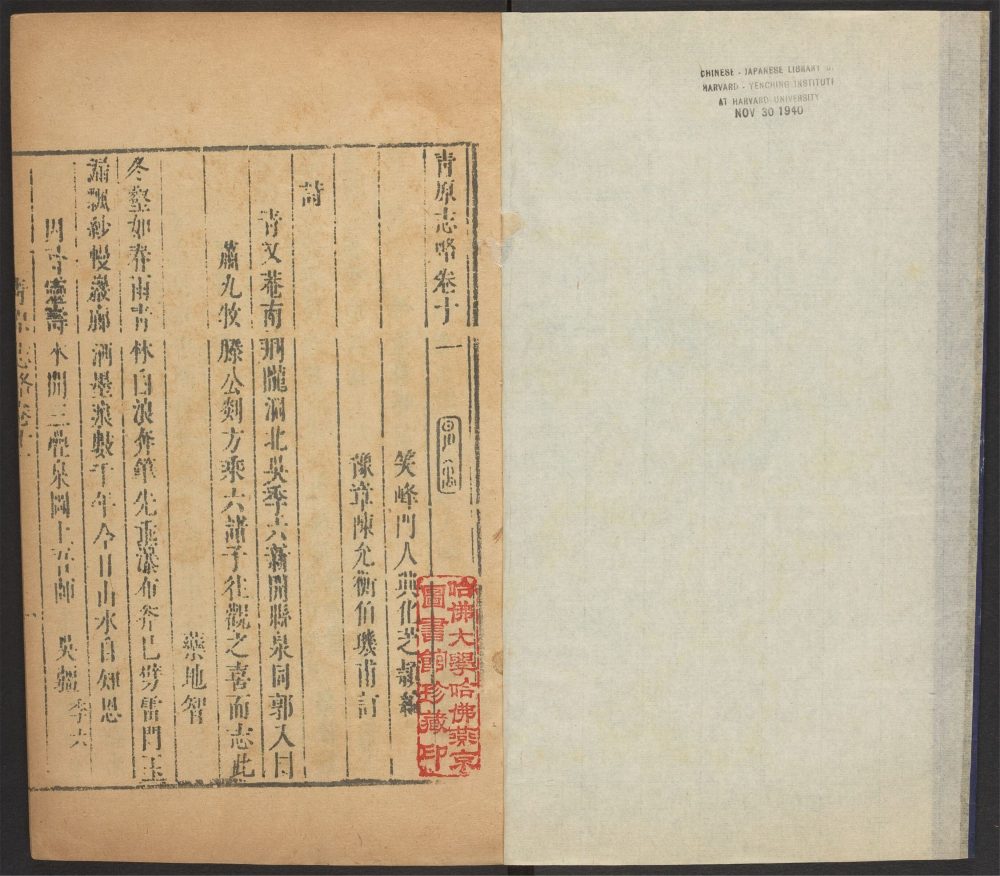 CHINESE - JAPANESE LIBRARY
HARVARD - YENCHING INSTITUTE
AT HARVARD UNIVERSITY
NOV 30 1940
青原志略卷十一
笑峰門人典化芝穎編
豫章陳允衡伯璣甫訂
哈佛大學哈佛燕京
圖書館珍藏印
詩
青又菴南澗隴洞北吳季六新開縣泉同郭入日
蕭九牧滕公剡方乘六諸子往觀之喜而志此
藥地智
冬壑如春雨青林白浪奔筆先垂瀑布斧已劈雷門玉
漏飄紗幔嚴廊洒墨浪數千年今日山水自知恩
水開三疊泉圖上吾師
吳疆
季六